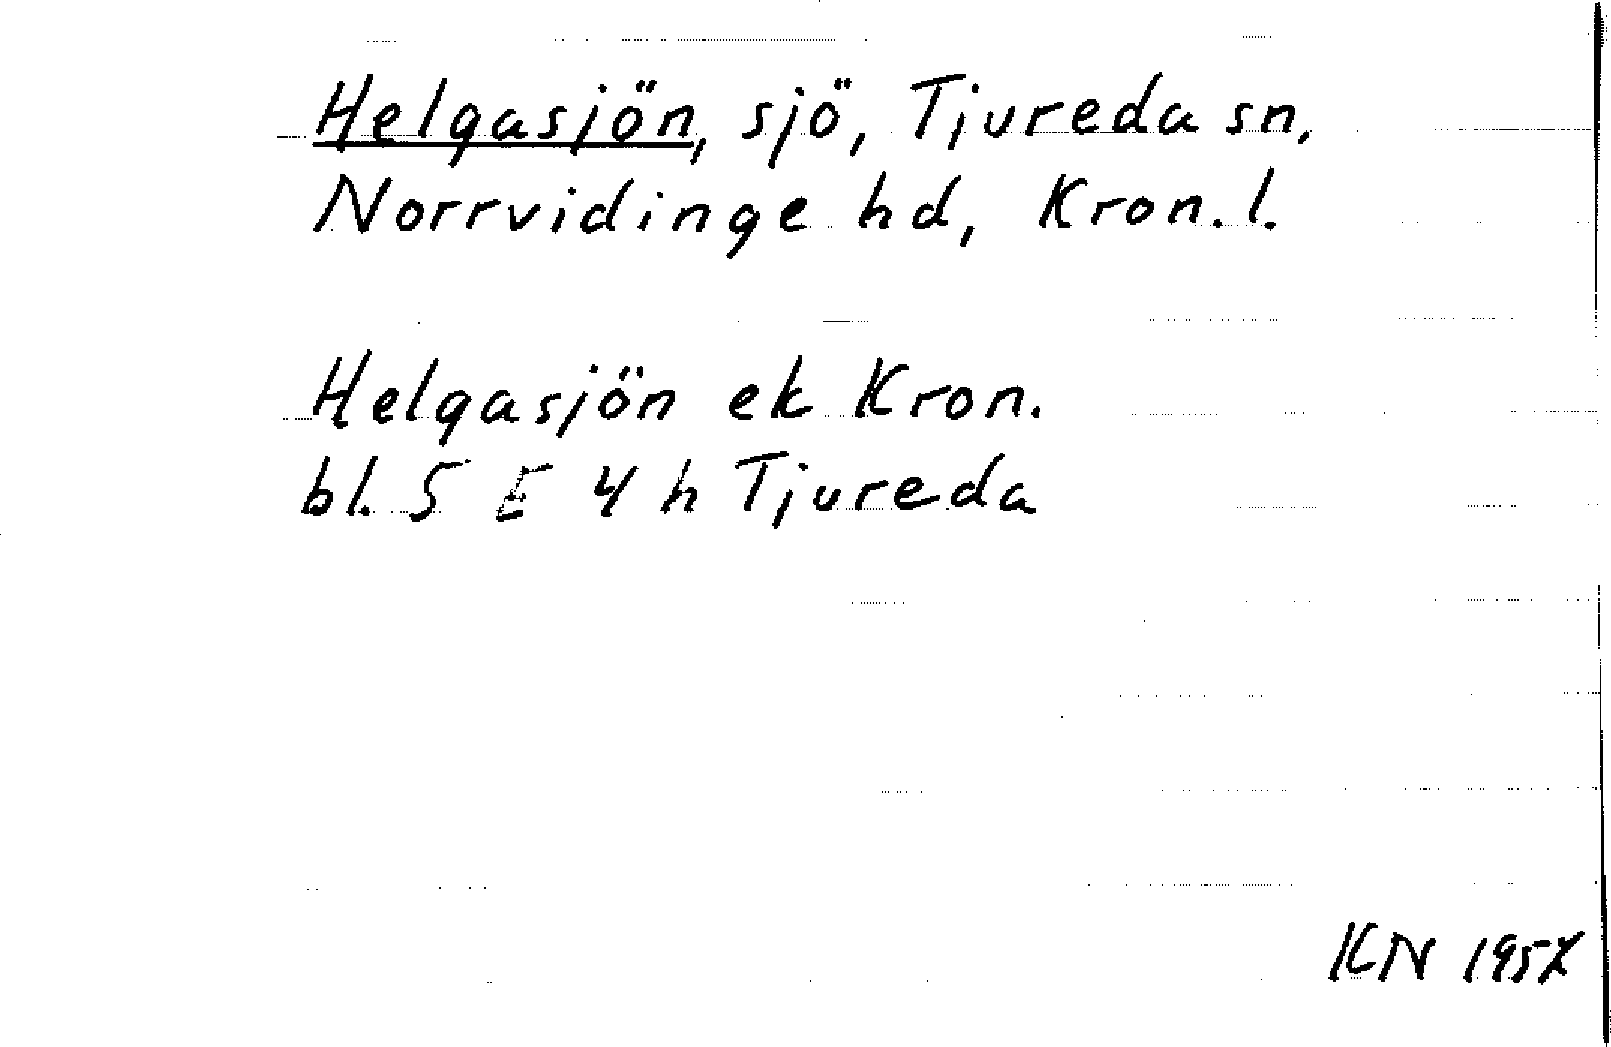 Helgasjön, sjö, Tjureda sn,
Norrvidinge hd, Kron. l.
Helgasjön ek Kron.
bl. 5 E 4 h Tjureda
KN 1957